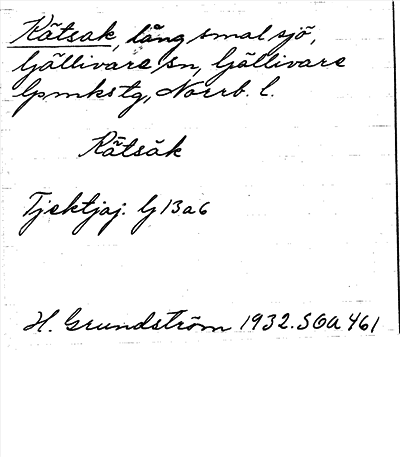 Rätsak, lång smal sjö,
Gällivare sn, Gällivare
lpmkstg, Norrb. l.
Rätsǎk
Tjektjaj: G 13a6
H. Grundström 1932. SOA 461